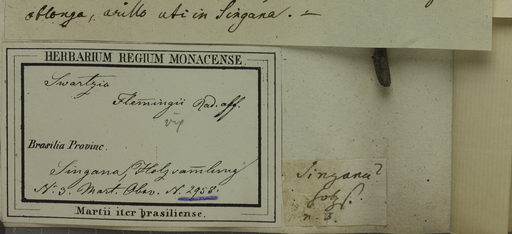 oblonga, arillo uti in Singana. —
HERBARIUM REGIUM MONACENSE
Swartzia
Flemingii Rad. aff.
Brasilia Provinc.
Singana, Holzsam̅lung
N. 3. Mart. Obsv. N. 2958
Martii iter brasiliense.
Singana?
n. 3.